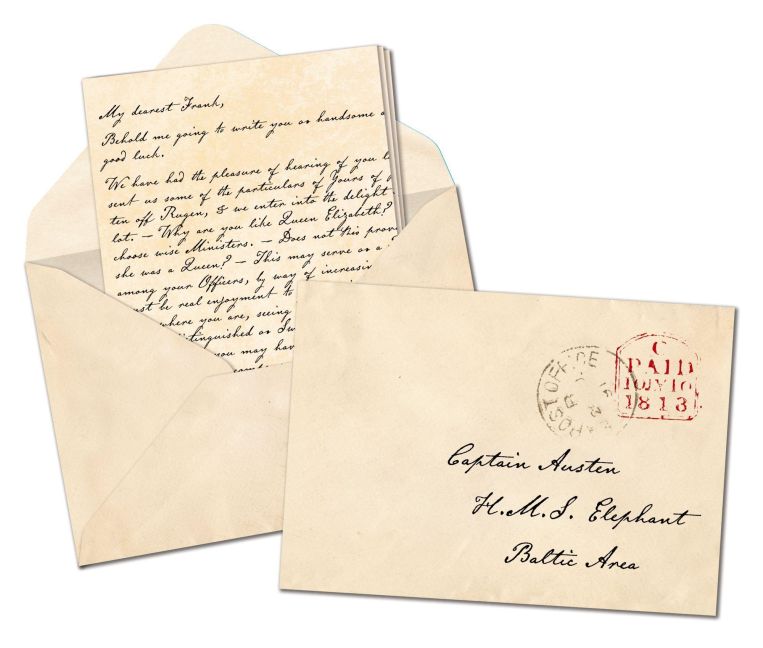 My dearest Frank,
Behold me going to write you as handsome a
good luck.
We have had the pleasure of hearing of you l
sent us some of the particulars of Yours of
ten off Rugen, & we enter into the delight
lot. — Why are you like Queen Elizabeth?
choose wise Ministers. — Does not this prov
she was a Queen? — This may serve as a
among your Officers, by way of increasin
ust be real enjoyment to
where you are, seeing
stinguished as Sw
you may hav
POST OFFICE
C
PAID
10JY10
1813
Captain Austen
H.M.S. Elephant
Baltic Area